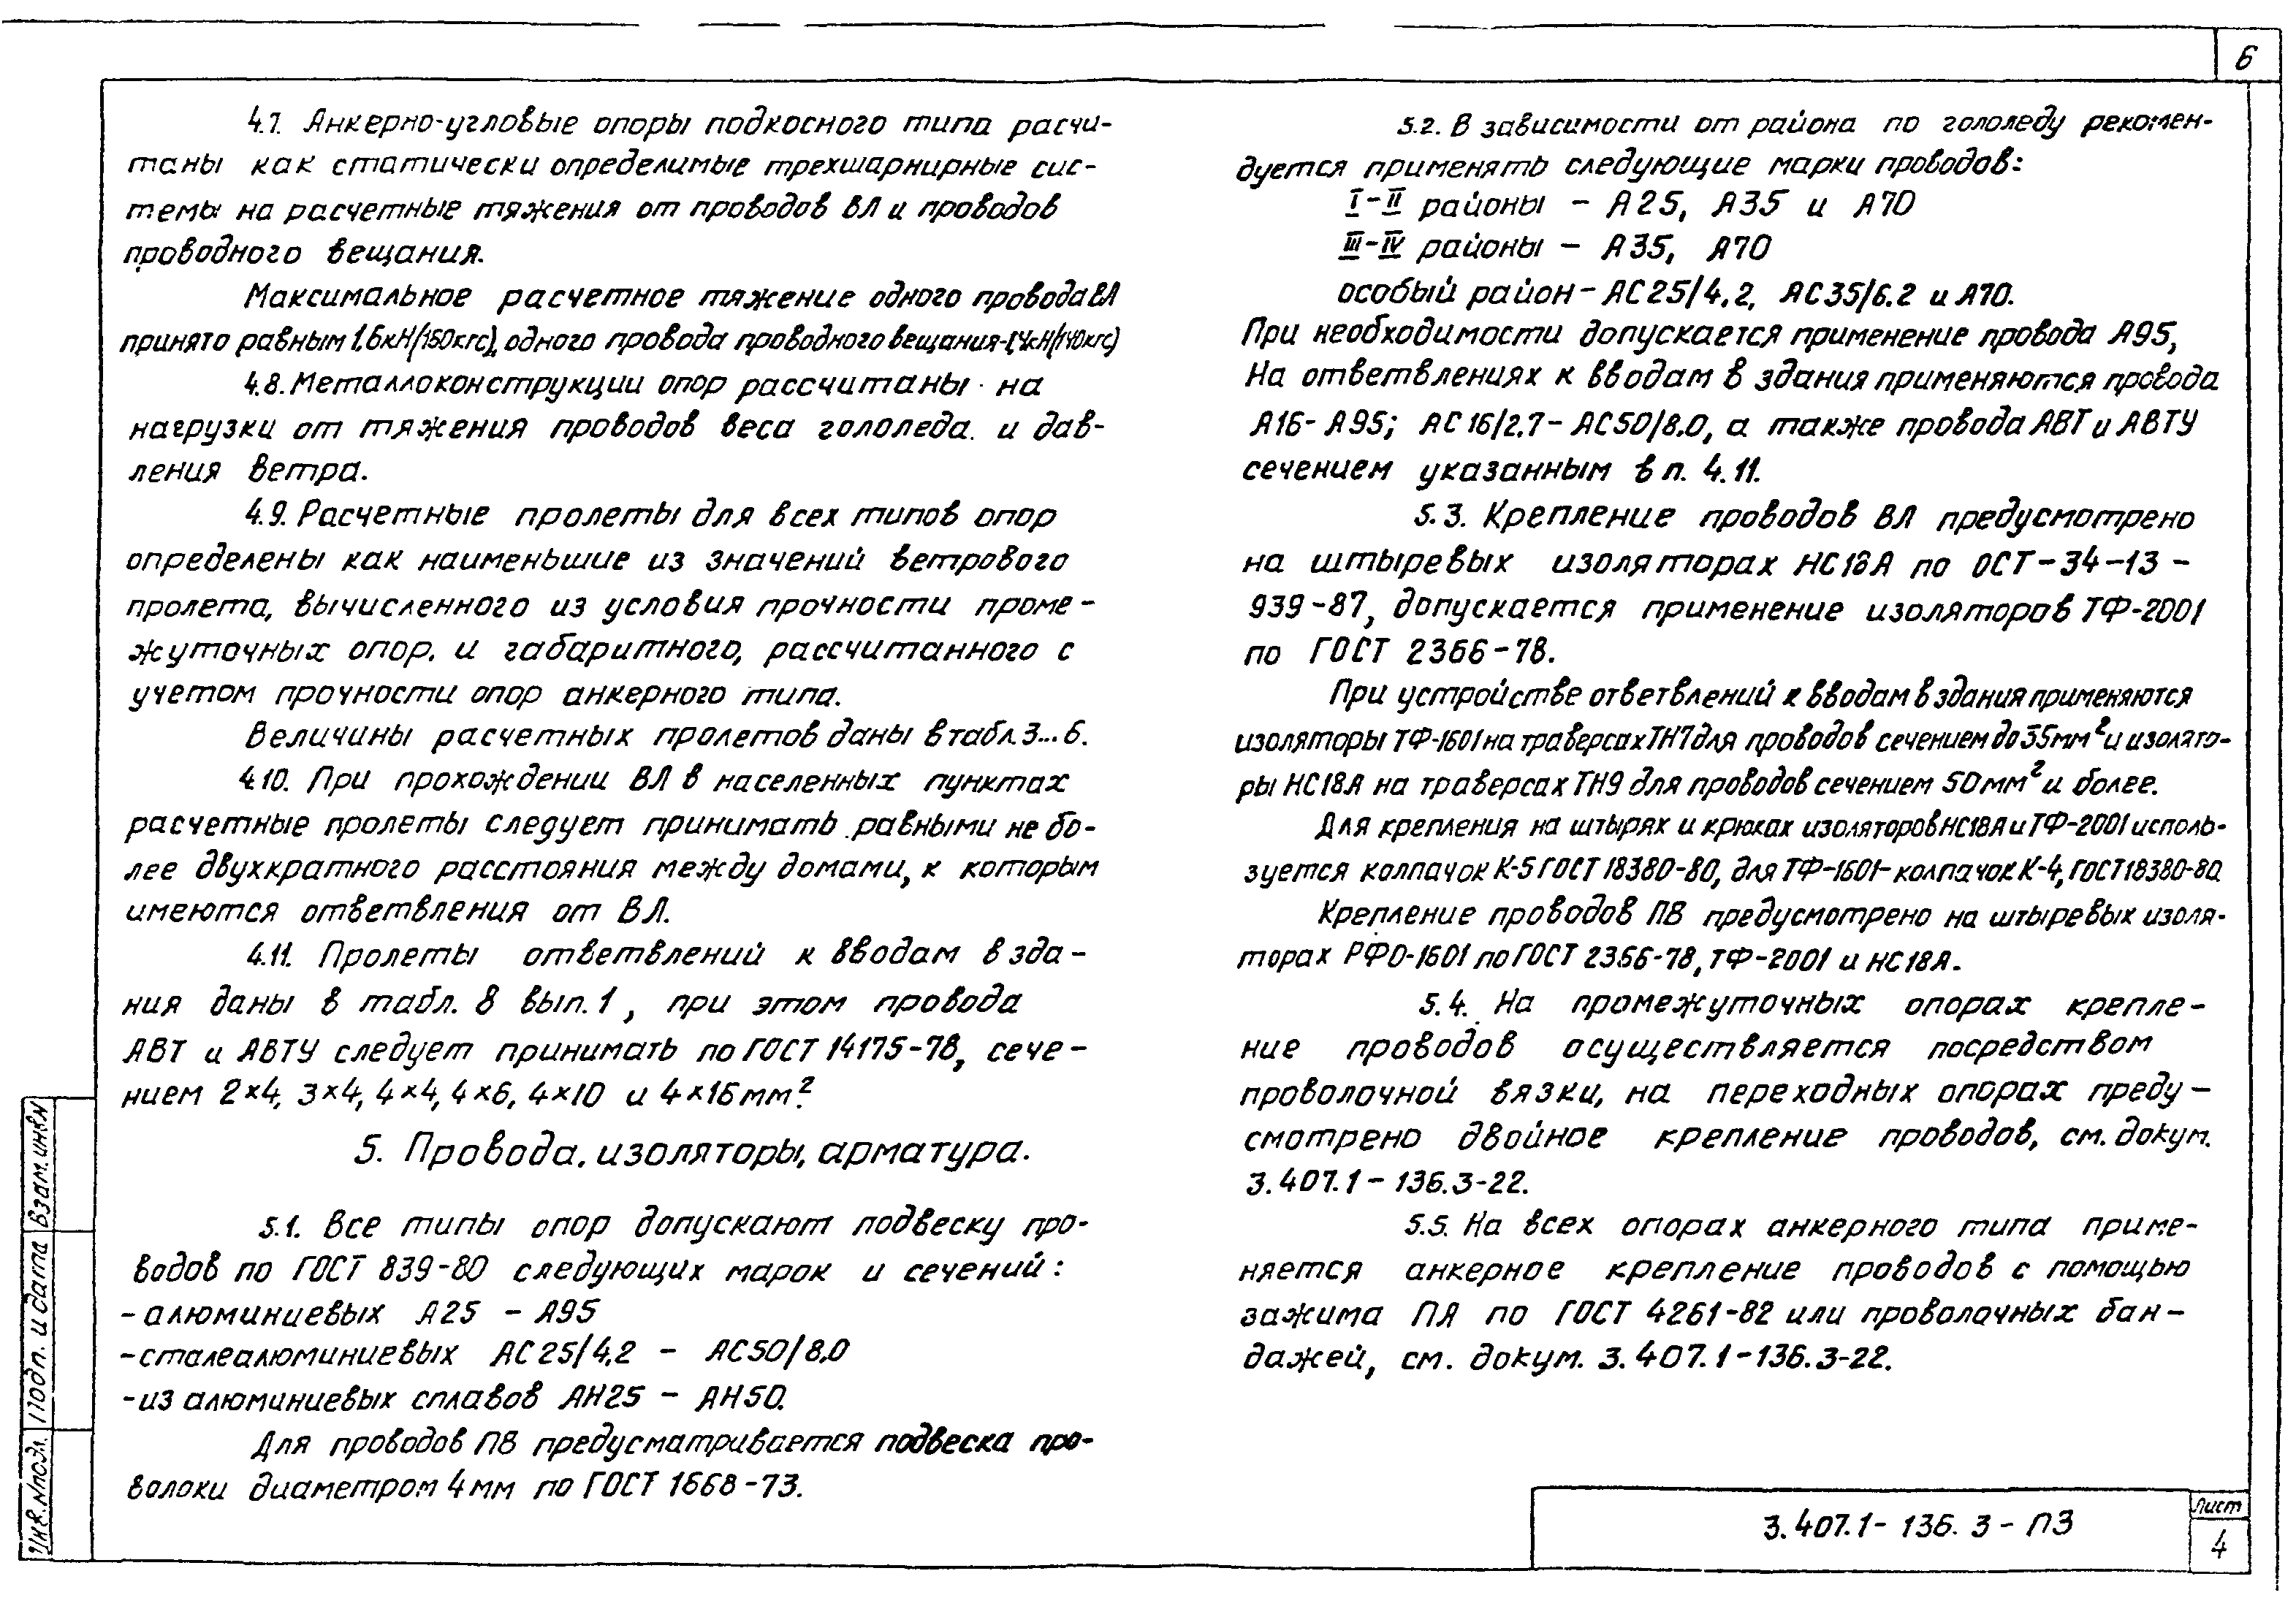 6
4.7. Анкерно-угловые опоры подкосного типа расчи-
таны как статически определимые трехшарнирные сис-
темы на расчетные тяжения от проводов ВЛ и проводов
проводного вещания.
Максимальное расчетное тяжение одного провода ВЛ
принято равным 1,6кН(150кгс), одного провода проводного вещания-1,4кН(140кгс)
4.8. Металлоконструкции опор рассчитаны на
нагрузки от тяжения проводов веса гололеда. и дав-
ления ветра.
4.9. Расчетные пролеты для всех типов опор
определены как наименьшие из значений ветрового
пролета, вычисленного из условия прочности проме-
жуточных опор. и габаритного, рассчитанного с
учетом прочности опор анкерного типа.
Величины расчетных пролетов даны в табл. 3...6.
4.10. При прохождении ВЛ в населенных пунктах
расчетные пролеты следует принимать равными не бо-
лее двухкратного расстояния между домами, к которым
имеются ответвления от ВЛ.
4.11. Пролеты ответвлений к вводам в зда-
ния даны в табл. 8 вып. 1, при этом провода
АВТ и АВТУ следует принимать по ГОСТ 14175-78, сече-
нием 2×4, 3×4, 4×4, 4×6, 4×10 и 4×16 мм².
5. Провода, изоляторы, арматура.
5.1. Все типы опор допускают подвеску про-
водов по ГОСТ 839-80 следующих марок и сечений:
- алюминиевых А25 - А95
- сталеалюминиевых АС25/4,2 - АС50/8,0
- из алюминиевых сплавов АН25 - АН50.
Для проводов ПВ предусматривается подвеска про-
волоки диаметром 4 мм по ГОСТ 1668-73.
5.2. В зависимости от района по гололеду рекомен-
дуется применять следующие марки проводов:
I-II районы - А25, А35 и А70
III-IV районы - А35, А70
особый район - АС25/4,2, АС35/6.2 и А70.
При необходимости допускается применение провода А95,
На ответвлениях к вводам в здания применяются провода
А16-А95; АС16/2,7-АС50/8.0, а также провода АВТ и АВТУ
сечением указанным в п. 4.11.
5.3. Крепление проводов ВЛ предусмотрено
на штыревых изоляторах НС18А по ОСТ-34-13-
939-87, допускается применение изоляторов ТФ-2001
по ГОСТ 2366-78.
При устройстве ответвлений к вводам в здания применяются
изоляторы ТФ-1601 на траверсах ТН7 для проводов сечением до 35мм² и изолято-
ры НС18А на траверсах ТН9 для проводов сечением 50мм² и более.
Для крепления на штырях и крюках изоляторов НС18А и ТФ-2001 исполь-
зуется колпачок К-5 ГОСТ 18380-80, для ТФ-1601-колпачок К-4, ГОСТ 18380-80.
Крепление проводов ПВ предусмотрено на штыревых изоля-
торах РФО-1601 по ГОСТ 2366-78, ТФ-2001 и НС18А.
5.4. На промежуточных опорах крепле-
ние проводов осуществляется посредством
проволочной вязки, на переходных опорах преду-
смотрено двойное крепление проводов, см. докум.
3.407.1-136.3-22.
5.5. На всех опорах анкерного типа приме-
няется анкерное крепление проводов с помощью
зажима ПА по ГОСТ 4261-82 или проволочных бан-
дажей, см. докум. 3.407.1-136.3-22.
Взам. инв. N
Подп. и дата
Инв. N подл.
3.407.1-136.3-ПЗ
Лист
4